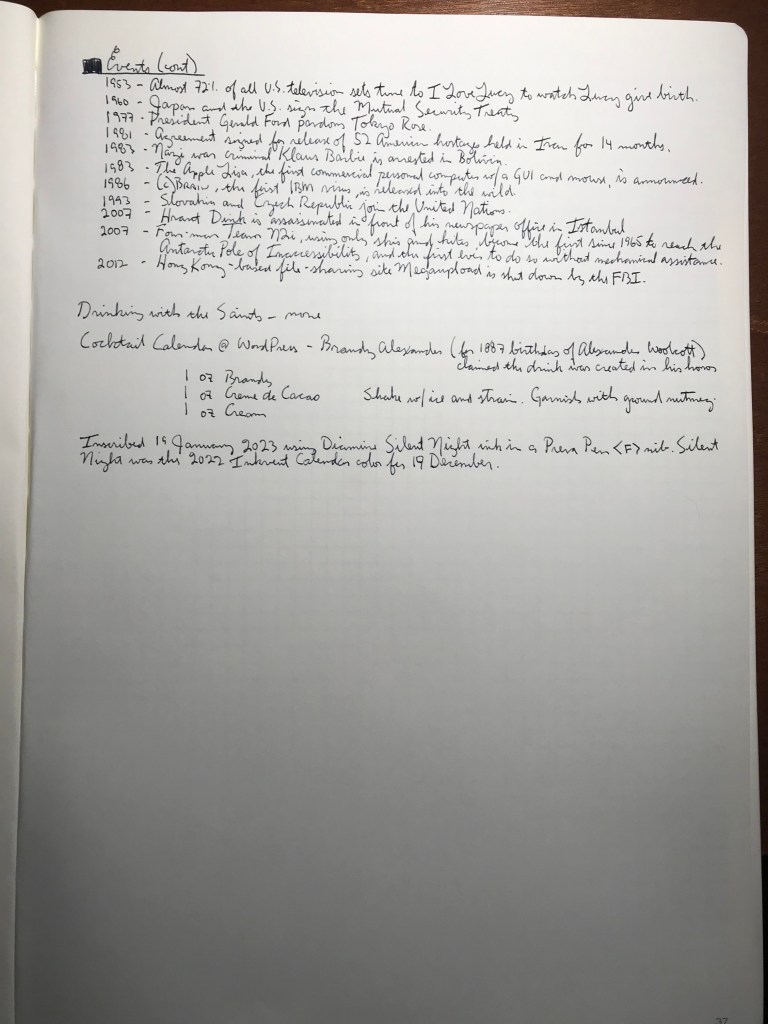 Events (cont)
1953 - Almost 72% of all U.S. television sets tune to I Love Lucy to watch Lucy give birth.
1960 - Japan and the U.S. sign the Mutual Security Treaty
1977 - President Gerald Ford pardons Tokyo Rose.
1981 - Agreement signed for release of 52 American hostages held in Iran for 14 months.
1983 - Nazi war criminal Klaus Barbie is arrested in Bolivia.
1983 - The Apple Lisa, the first commercial personal computer w/a GUI and mouse, is announced.
1986 - (c)Brain, the first IBM virus, is released into the wild
1993 - Slovakia and Czech Republic join the United Nations.
2007 - Hrant Dink is assassinated in front of his newspaper office in Istanbul
2007 - Four-man Team N2i, using only skis and kites, become the first since 1965 to reach the
Antarctic Pole of Inaccessibility, and the first ever to do so without mechanical assistance.
2012 - Hong Kong-based file-sharing site Megaupload is shut down by the FBI.
Drinking with the Saints - none
Cocktail Calendar @ WordPress - Brandy Alexander (for 1887 birthday of Alexander Woolcott)
claimed the drink was created in his honor
1 oz Brandy
1 oz Creme de Cacao Shake w/ice and strain. Garnish with ground nutmeg.
1 oz Cream
Inscribed 19 January 2023 using Diamine Silent Night ink in a Prera Pen <F> nib. Silent
Night was the 2022 Inkvent Calendar color for 19 December.
37